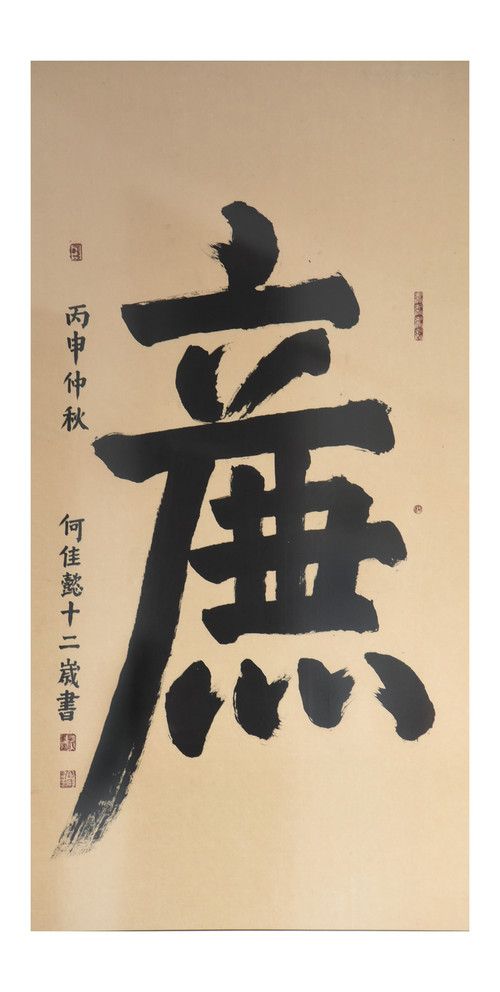 廉
丙申仲秋 何佳懿十二歲書